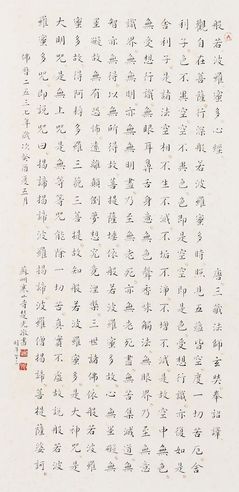 般若波羅蜜多心經 唐三藏法師玄奘奉詔譯
觀自在菩薩行深般若波羅蜜多時照見五蘊皆空度一切苦厄舍
利子色不異空空不異色色即是空空即是色受想行識亦復如是
舍利子是諸法空相不生不滅不垢不淨不增不減是故空中無色
無受想行識無眼耳鼻舌身意無色聲香味觸法無眼界乃至無意
識界無無明亦無無明盡乃至無老死亦無老死盡無苦集滅道無
智亦無得以無所得故菩提薩埵依般若波羅蜜多故心無罣礙無
罣礙故無有恐怖遠離顛倒夢想究竟涅槃三世諸佛依般若波羅
蜜多故得阿耨多羅三藐三菩提故知般若波羅蜜多是大神咒是
大明咒是無上咒是無等等咒能除一切苦真實不虛故說般若波
羅蜜多咒即說咒曰揭諦揭諦波羅揭諦波羅僧揭諦菩提薩婆訶
佛曆二五三七年歲次癸酉夏五月 蘇州寒山寺楚光敬書